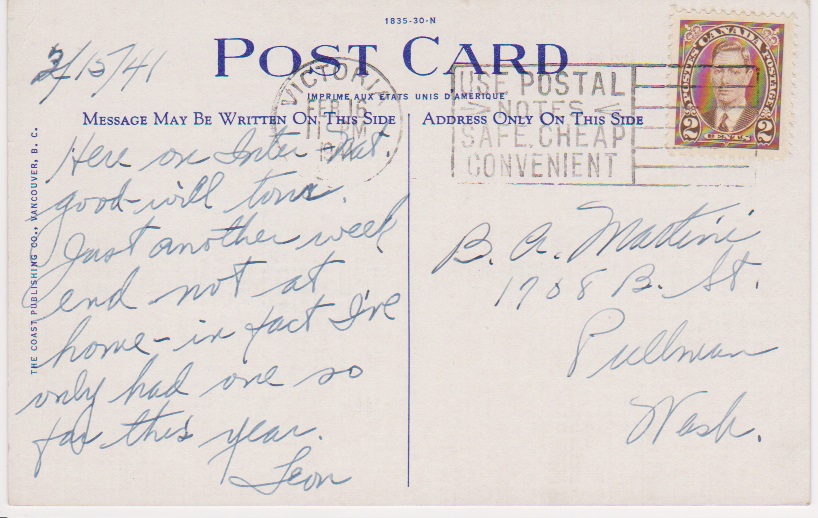 1835-30-N
POST CARD
2/15/41
IMPRIMÉ AUX ÉTATS UNIS D'AMÉRIQUE
MESSAGE MAY BE WRITTEN ON THIS SIDE
ADDRESS ONLY ON THIS SIDE
VICTORIA
FEB 16
USE POSTAL
NOTES
SAFE. CHEAP
CONVENIENT
POSTES CANADA POSTAGE
2 CENTS 2
THE COAST PUBLISHING CO., VANCOUVER, B. C.
Here on Inter nat.
good-will tour.
Just another week
end not at
home - in fact I've
only had one so
far this year.
Leon
B. A. Martini
1708 B. St.
Pullman
Wash.